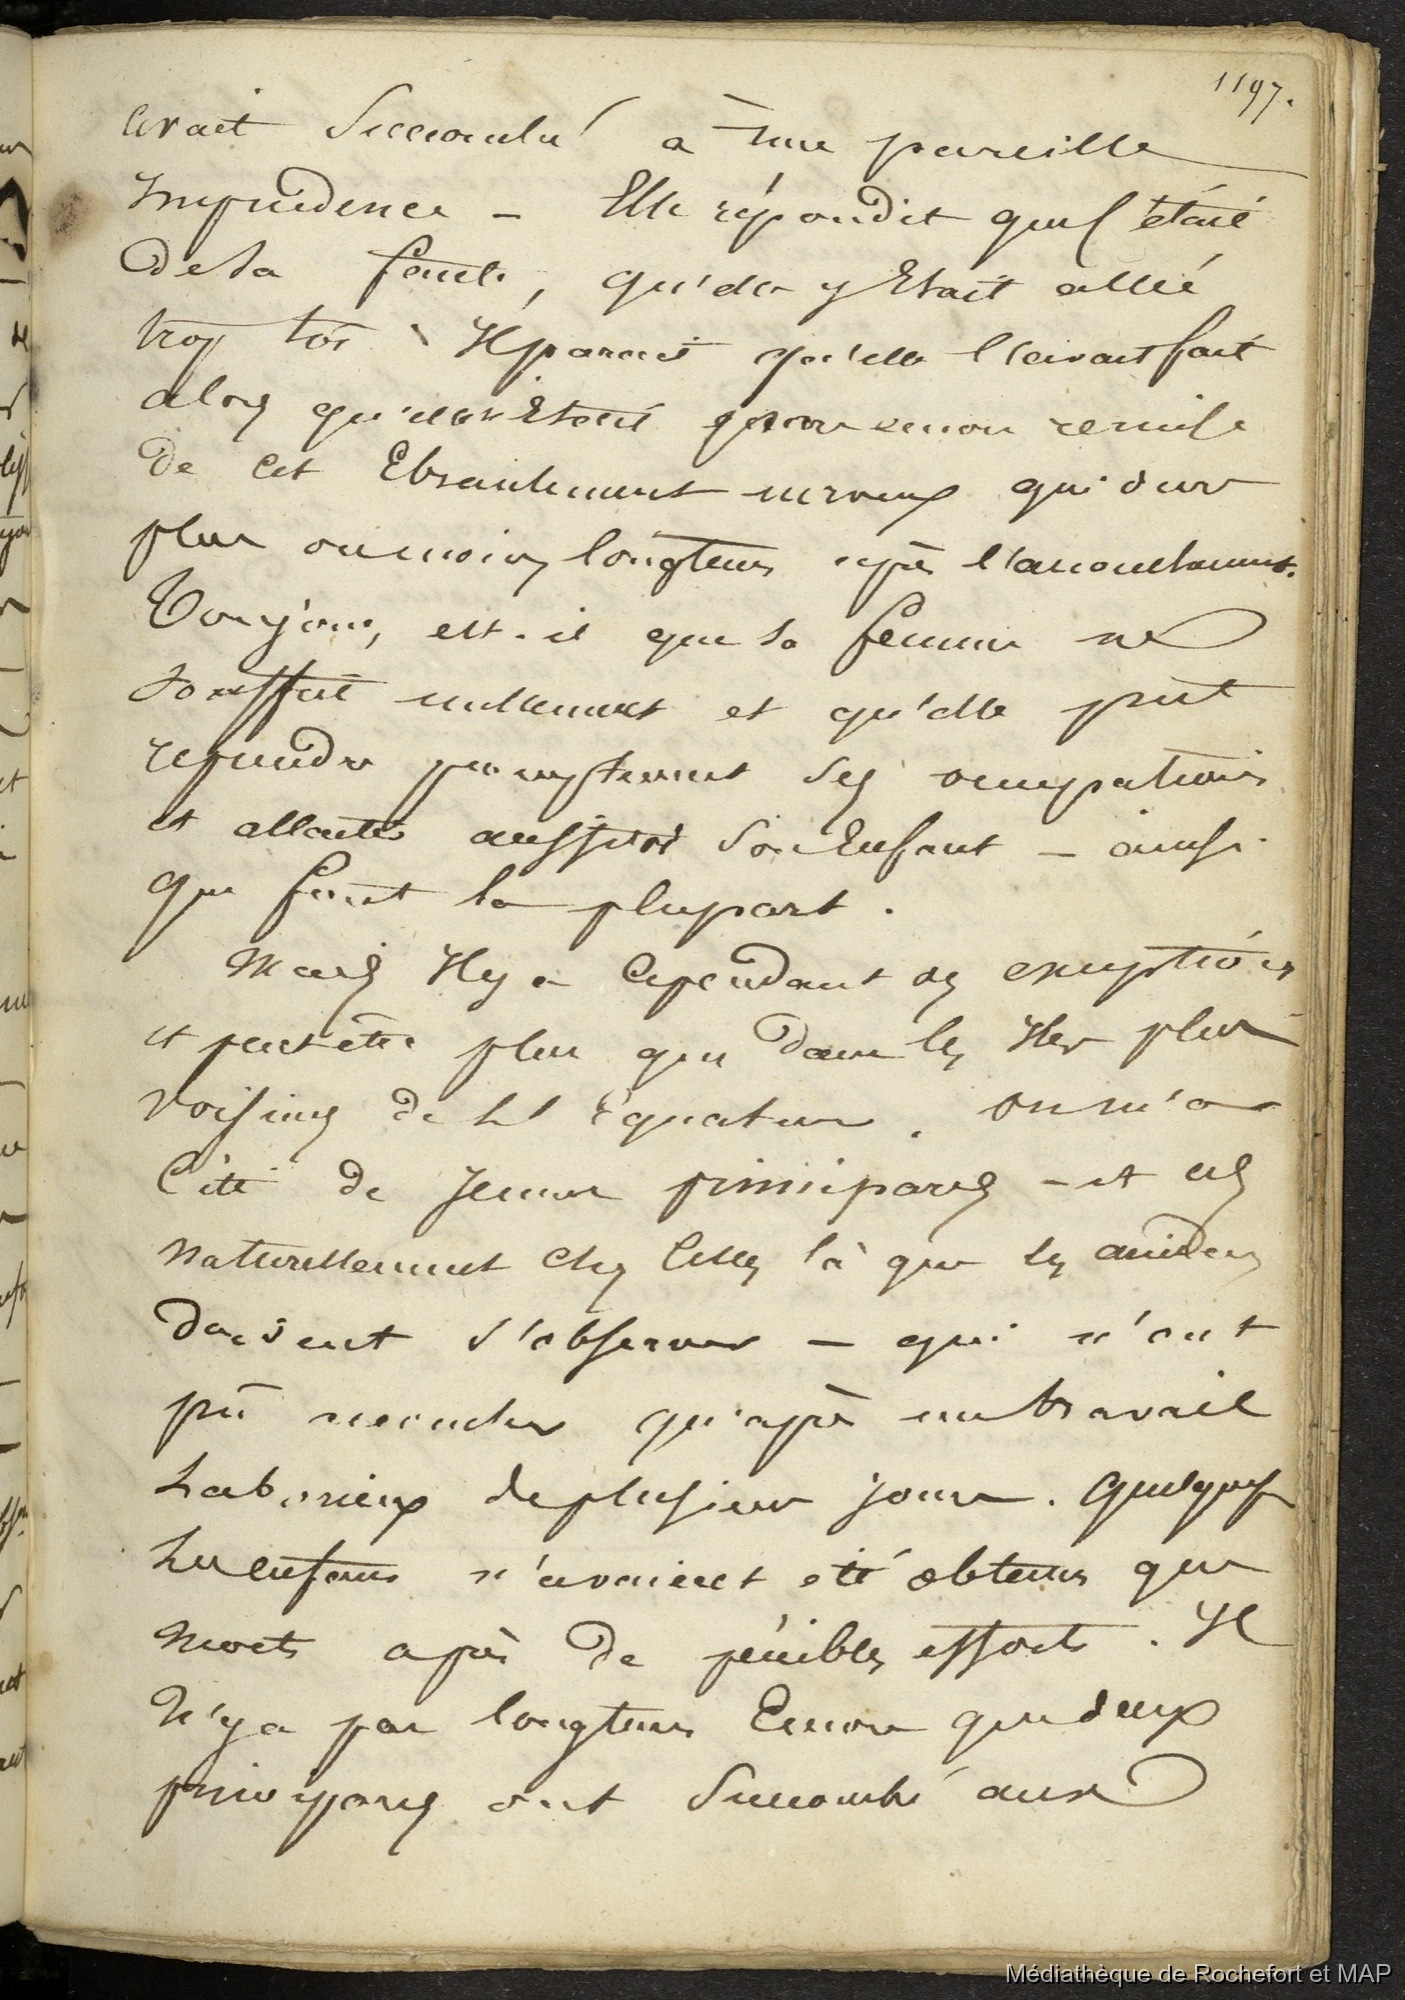 1197.
avait succombé à une pareille
Imprudence – Elle répondit que c'était
de sa faute, qu'elle y Etait allée
trop tôt Il parait qu'elle l'avait fait
alors qu'elle Etait encore remise
De Cet Ebranlement nerveux qui dure
plus ou moins longtems après l'accouchement.
Toujours, est-il que la femme ne
souffrit nullement et qu'elle put
reprendre promptement ses occupations
et allaiter aussitôt son Enfant – ainsi
que font la plupart.
Mais Il y a Cependant des exceptions
et peut être plus que dans les Iles plus
Voisines de l'Equateur. on m'a
Cité de Jeunes primipares – et c'est
Naturellement chez Celles là que les accidens
Doivent s'observer – qui n'ont
pû accoucher qu'après un travail
Laborieux de plusieurs jours. Quelquef
Les enfans n'avaient été obtenus que
Morts après de pénibles efforts. Il
N'y a pas longtems Encore que deux
primipares ont Succombé aux
Médiathèque de Rochefort et MAP